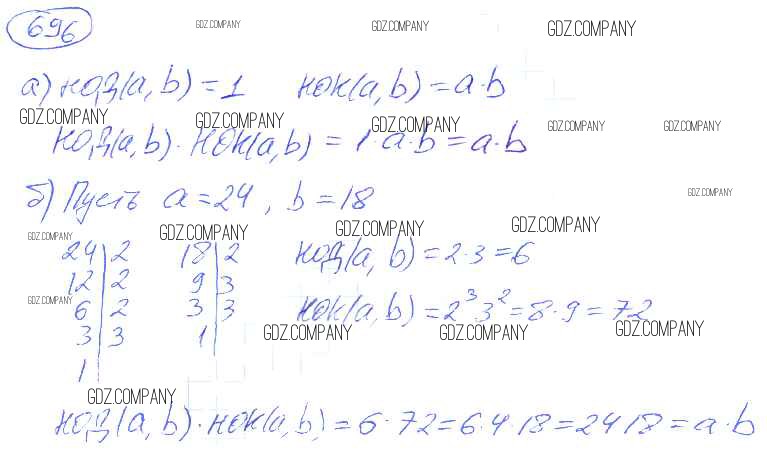 696
GDZ.COMPANY GDZ.COMPANY GDZ.COMPANY
а) НОД(a, b) = 1 НОК(a, b) = a·b
GDZ.COMPANY GDZ.COMPANY GDZ.COMPANY GDZ.COMPANY GDZ.COMPANY
НОД(a, b)·НОК(a, b) = 1·a·b = a·b
б) Пусть a = 24, b = 18
GDZ.COMPANY
GDZ.COMPANY GDZ.COMPANY GDZ.COMPANY GDZ.COMPANY
24|2 18|2 НОД(a, b) = 2·3 = 6
12|2 9|3
GDZ.COMPANY
6|2 3|3 НОК(a, b) = 2³3² = 8·9 = 72
3|3 1|
GDZ.COMPANY GDZ.COMPANY GDZ.COMPANY
1|
GDZ.COMPANY
НОД(a, b)·НОК(a, b) = 6·72 = 6·4·18 = 24 18 = a·b